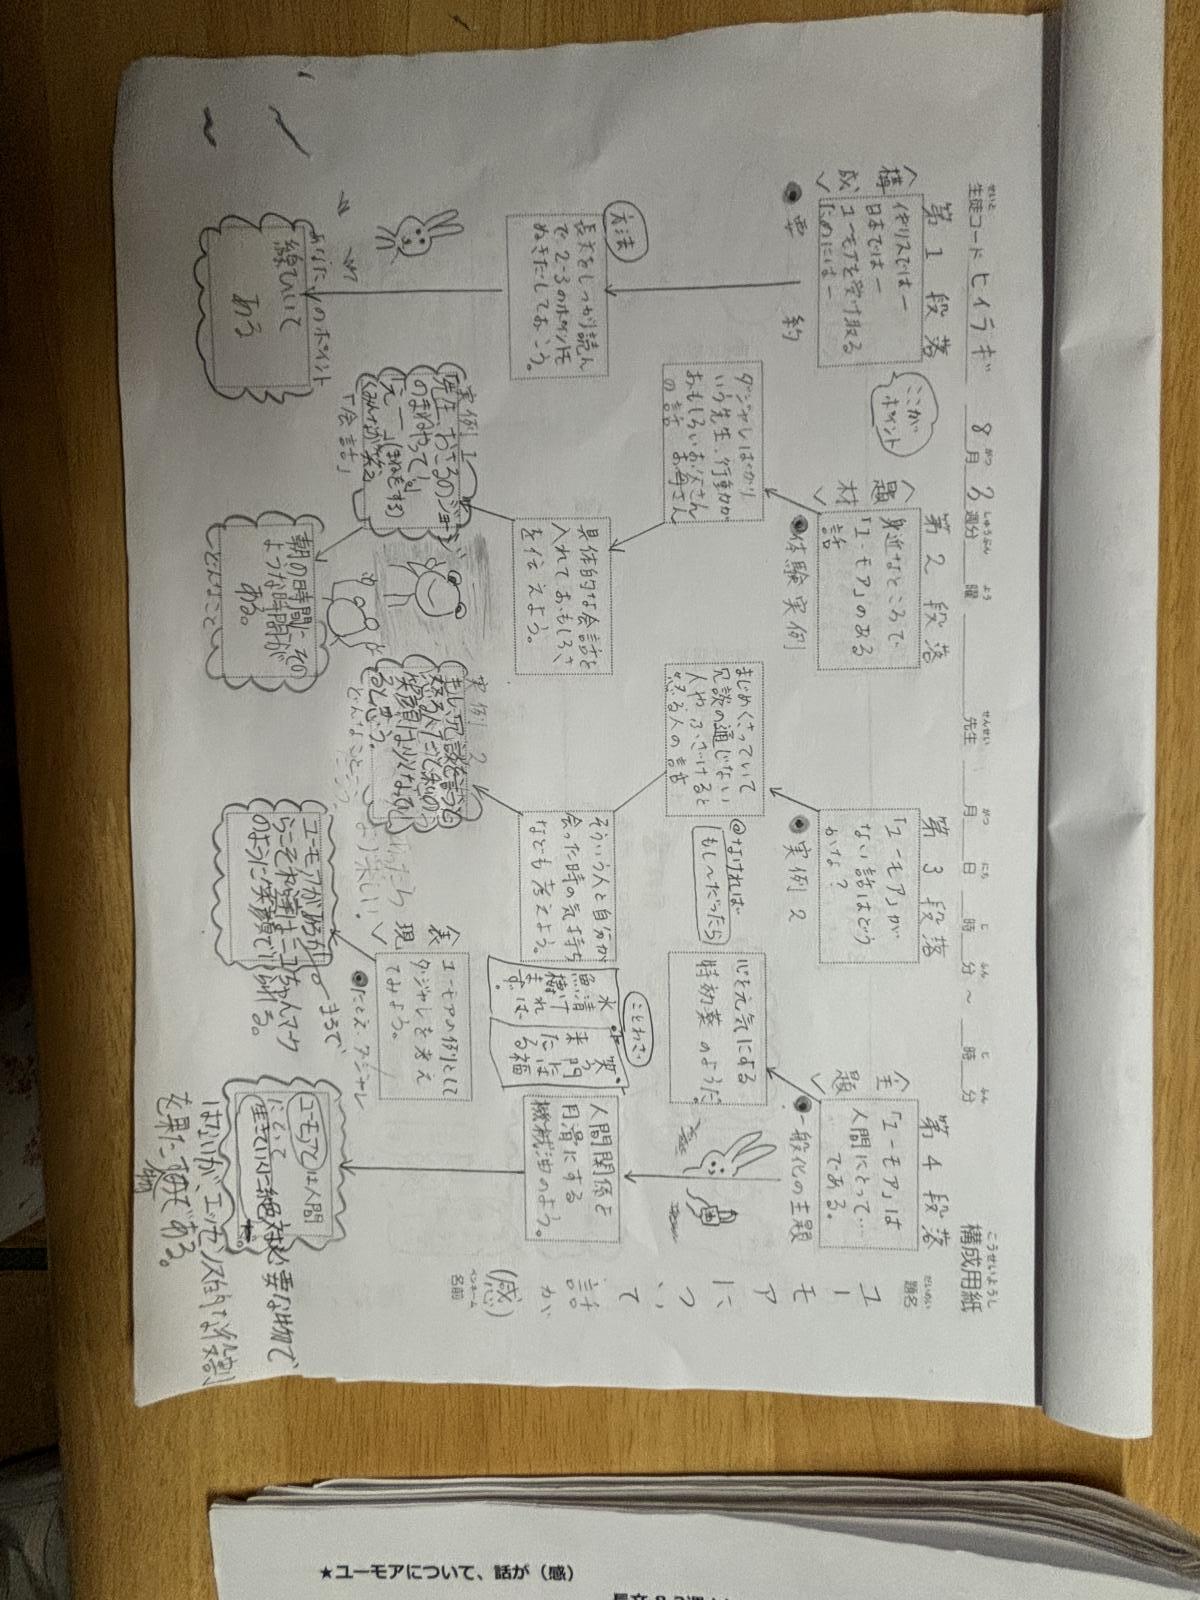 構成用紙
こうせいようし
生徒コード ヒイラギ 8月3週分 曜 先生 月 日 時 分 ~ 時 分
題名
ユーモアについて、話が(感)
ペンネーム
名前
第1段落
<構成>
イギリスでは一
日本では一
ユーモアを受け取る
ためには一
●要約
方法
長文をしっかり読ん
で2~3のポイントを
ぬきだしておこう。
あなたのポイント
線でひいて
ある
ここが
ポイント
第2段落
<題材>
身近なところで
「ユーモア」のある
話
●体験実例
ダジャレばかり
いう先生、行動力が
おもしろいお父さん
お母さん
の話
具体的な会話を
入れておもしろさ
を伝えよう。
実例1
「先生、おさるのジョージ
のまねやって!」
「え一」(まねをする)
(みんなが笑う)
「会話」
朝の時間にその
ような時間が
ある。
どんなこと
第3段落
「ユーモア」が
ない話はどう
かな?
●実例2
まじめくさっていて
冗談の通じない
人やふざけると
怒る人の話
@なければ
もし~だったら
そういう人と自分が
会った時の気持ち
なども考えよう。
実例2
もし、冗談を言っても
怒る人だて知のら
笑顔は少なくなる
と思う。
どんなところ
ユーモアがあるか
らこそ
のように笑顔で
いれる。
まるで
第4段落
<主題>
「ユーモア」は
人間にとって…
である。
●一般化の主題
心を元気にする
特効薬のようだ。
人間関係を
円滑にする
機械油のよう。
ことわざ
水清ければ
魚棲まず。
笑う門には
福来たる
<表現>
ユーモアの例として
ダジャレを考え
てみよう。
●たとえ・ダジャレ
ユーモアとは人間
にとって
生きていくのに絶対必要な物で
はないが、エッセンス的な役割
を果たす物である。
★ユーモアについて、話が(感)